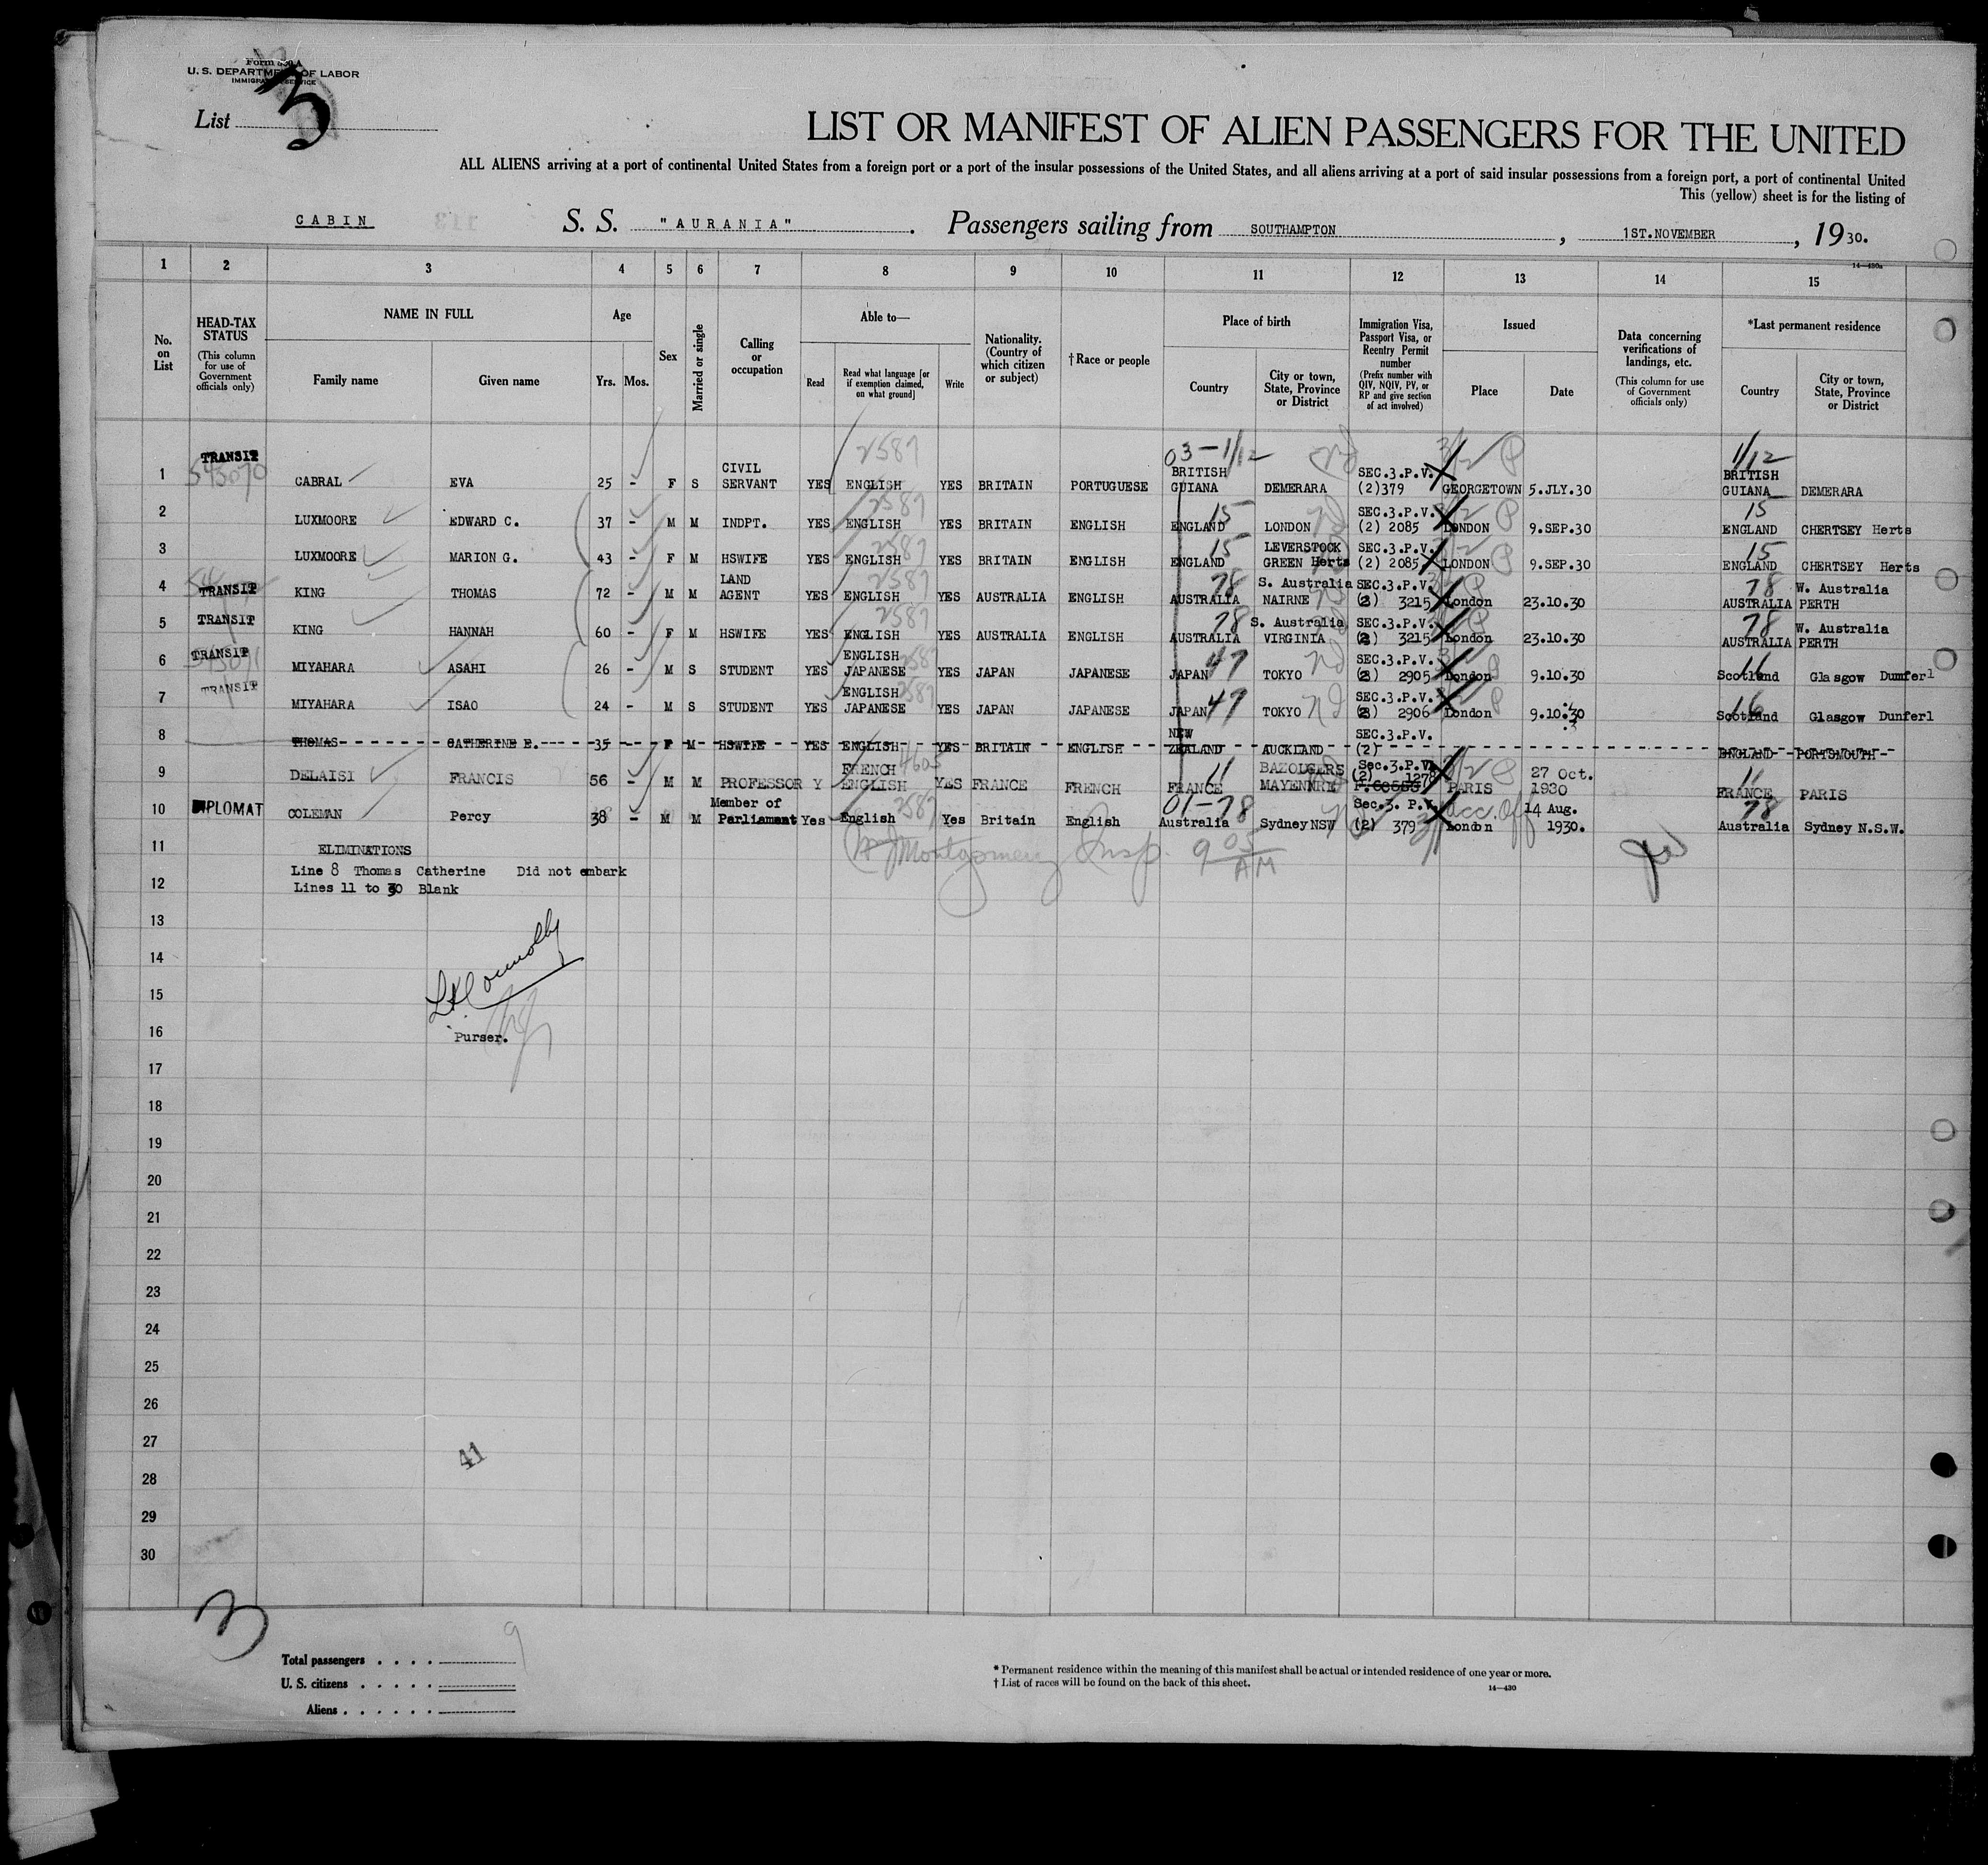 U. S. DEPARTMENT OF LABOR
List 3
LIST OR MANIFEST OF ALIEN PASSENGERS FOR THE UNITED
ALL ALIENS arriving at a port of continental United States from a foreign port or a port of the insular possessions of the United States, and all aliens arriving at a port of said insular possessions from a foreign port, a port of continental United
This (yellow) sheet is for the listing of
CABIN S. S. "AURANIA". Passengers sailing from SOUTHAMPTON, 1ST.NOVEMBER, 1930.
1 2 3 4 5 6 7 8 9 10 11 12 13 14 15
No. on List
HEAD-TAX STATUS (This column for use of Government officials only)
NAME IN FULL Family name Given name
Age Yrs. Mos.
Sex
Married or single
Calling or occupation
Able to— Read Read what language [or if exemption claimed, on what ground] Write
Nationality. (Country of which citizen or subject)
†Race or people
Place of birth Country City or town, State, Province or District
Immigration Visa, Passport Visa, or Reentry Permit number (Prefix number with QIV, NQIV, PV, or RP and give section of act involved)
Issued Place Date
Data concerning verifications of landings, etc. (This column for use of Government officials only)
*Last permanent residence Country City or town, State, Province or District
1 TRANSIT CABRAL EVA 25 - F S CIVIL SERVANT YES ENGLISH 2587 YES BRITAIN PORTUGUESE 03-1/12 BRITISH GUIANA DEMERARA SEC.3.P.V. (2)379 GEORGETOWN 5.JLY.30 1/12 BRITISH GUIANA DEMERARA
2 LUXMOORE EDWARD C. 37 - M M INDPT. YES ENGLISH 2587 YES BRITAIN ENGLISH 15 ENGLAND LONDON SEC.3.P.V. (2) 2085 LONDON 9.SEP.30 15 ENGLAND CHERTSEY Herts
3 LUXMOORE MARION G. 43 - F M HSWIFE YES ENGLISH 2587 YES BRITAIN ENGLISH 15 ENGLAND LEVERSTOCK GREEN Herts SEC.3.P.V. (2) 2085 LONDON 9.SEP.30 15 ENGLAND CHERTSEY Herts
4 TRANSIT KING THOMAS 72 - M M LAND AGENT YES ENGLISH 2587 YES AUSTRALIA ENGLISH 78 AUSTRALIA S. Australia NAIRNE SEC.3.P.V. 3215 London 23.10.30 78 AUSTRALIA W. Australia PERTH
5 TRANSIT KING HANNAH 60 - F M HSWIFE YES ENGLISH 2587 YES AUSTRALIA ENGLISH 78 AUSTRALIA S. Australia VIRGINIA SEC.3.P.V. 3215 London 23.10.30 78 AUSTRALIA W. Australia PERTH
6 TRANSIT MIYAHARA ASAHI 26 - M S STUDENT YES ENGLISH JAPANESE 2587 YES JAPAN JAPANESE JAPAN 47 TOKYO SEC.3.P.V. 2905 London 9.10.30 16 Scotland Glasgow Dumferl
7 TRANSIT MIYAHARA ISAO 24 - M S STUDENT YES ENGLISH JAPANESE 2587 YES JAPAN JAPANESE JAPAN 47 TOKYO SEC.3.P.V. 2906 London 9.10.30 16 Scotland Glasgow Dunferl
8 THOMAS CATHERINE E. 35 - F M HSWIFE YES ENGLISH YES BRITAIN ENGLISH NEW ZEALAND AUCKLAND SEC.3.P.V. (2) ENGLAND PORTSMOUTH
9 DELAISI FRANCIS 56 - M M PROFESSOR Y FRENCH ENGLISH 4605 YES FRANCE FRENCH 11 FRANCE BAZOUGERS MAYENNRE Sec.3.P.V. (2) 1278 PARIS 27 Oct. 1930 11 FRANCE PARIS
10 DIPLOMAT COLEMAN Percy 38 - M M Member of Parliament Yes English 2587 Yes Britain English 01-78 Australia Sydney NSW Sec.3. P.V. (2) 379 London 14 Aug. 1930. 78 Australia Sydney N.S.W.
11 ELIMINATIONS
Montgomery Insp. 9 05 AM
Line 8 Thomas Catherine Did not embark
12 Lines 11 to 30 Blank
13
14
15
Connolly
16 Purser.
17
18
19
20
21
22
23
24
25
26
27
41
28
29
30
3
Total passengers . . . . 9
U. S. citizens . . . . .
Aliens . . . . . .
* Permanent residence within the meaning of this manifest shall be actual or intended residence of one year or more.
† List of races will be found on the back of this sheet.
14—430